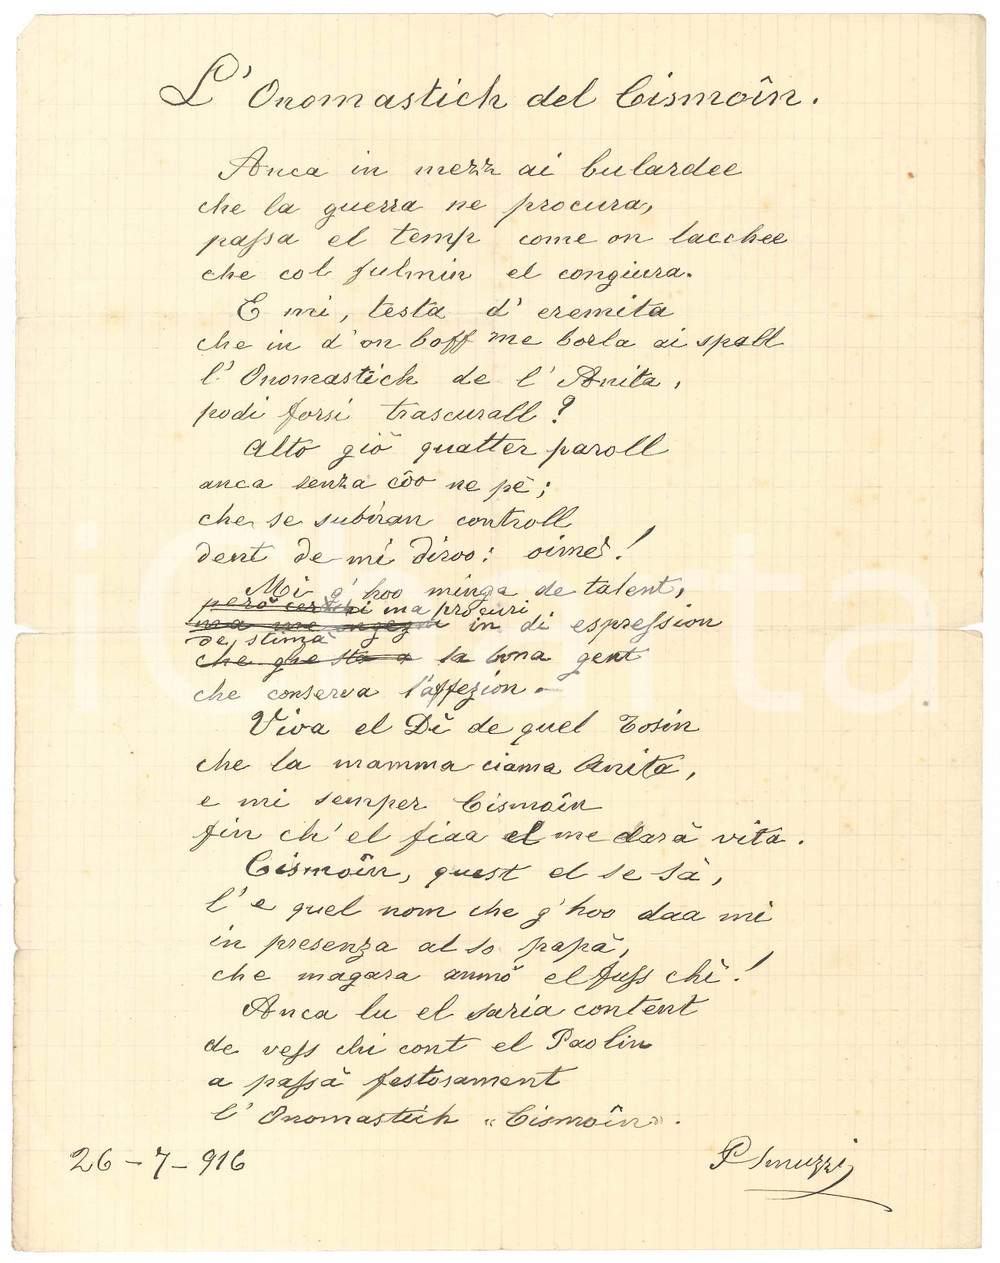 L'Onomastich del Cismoîn.
Anca in mezz ai bulardee
che la guerra ne procura,
passa el temp come on lacchee
che col fulmin el congiura.
E mi, testa d'eremita
che in d'on boff me borla ai spall
l'Onomastich de l'Anita,
podi forsi trascurall?
Alto giò quatter paroll
anca senza côo ne pè;
che se subiran controll
dent de mi diroo: oimè!
Mi g'hoo minga de talent,
però cerchi ma procuri
ma me ingegni in di espression
de stima
che ghe sta a la bona gent
che conserva l'affezion.
Viva el Dì de quel Tosin
che la mamma ciama Anita,
e mi semper Cismoîn
fin ch'el fiaa el me darà vita.
Cismoîn, quest el se sà,
l'e quel nom che g'hoo daa mi
in presenza al so papà,
che magara anmò el fuss chì!
Anca lu el saria content
de vess chi cont el Paolin
a passà festosament
l'Onomastich «Cismoîn».
26-7-916
iCharta